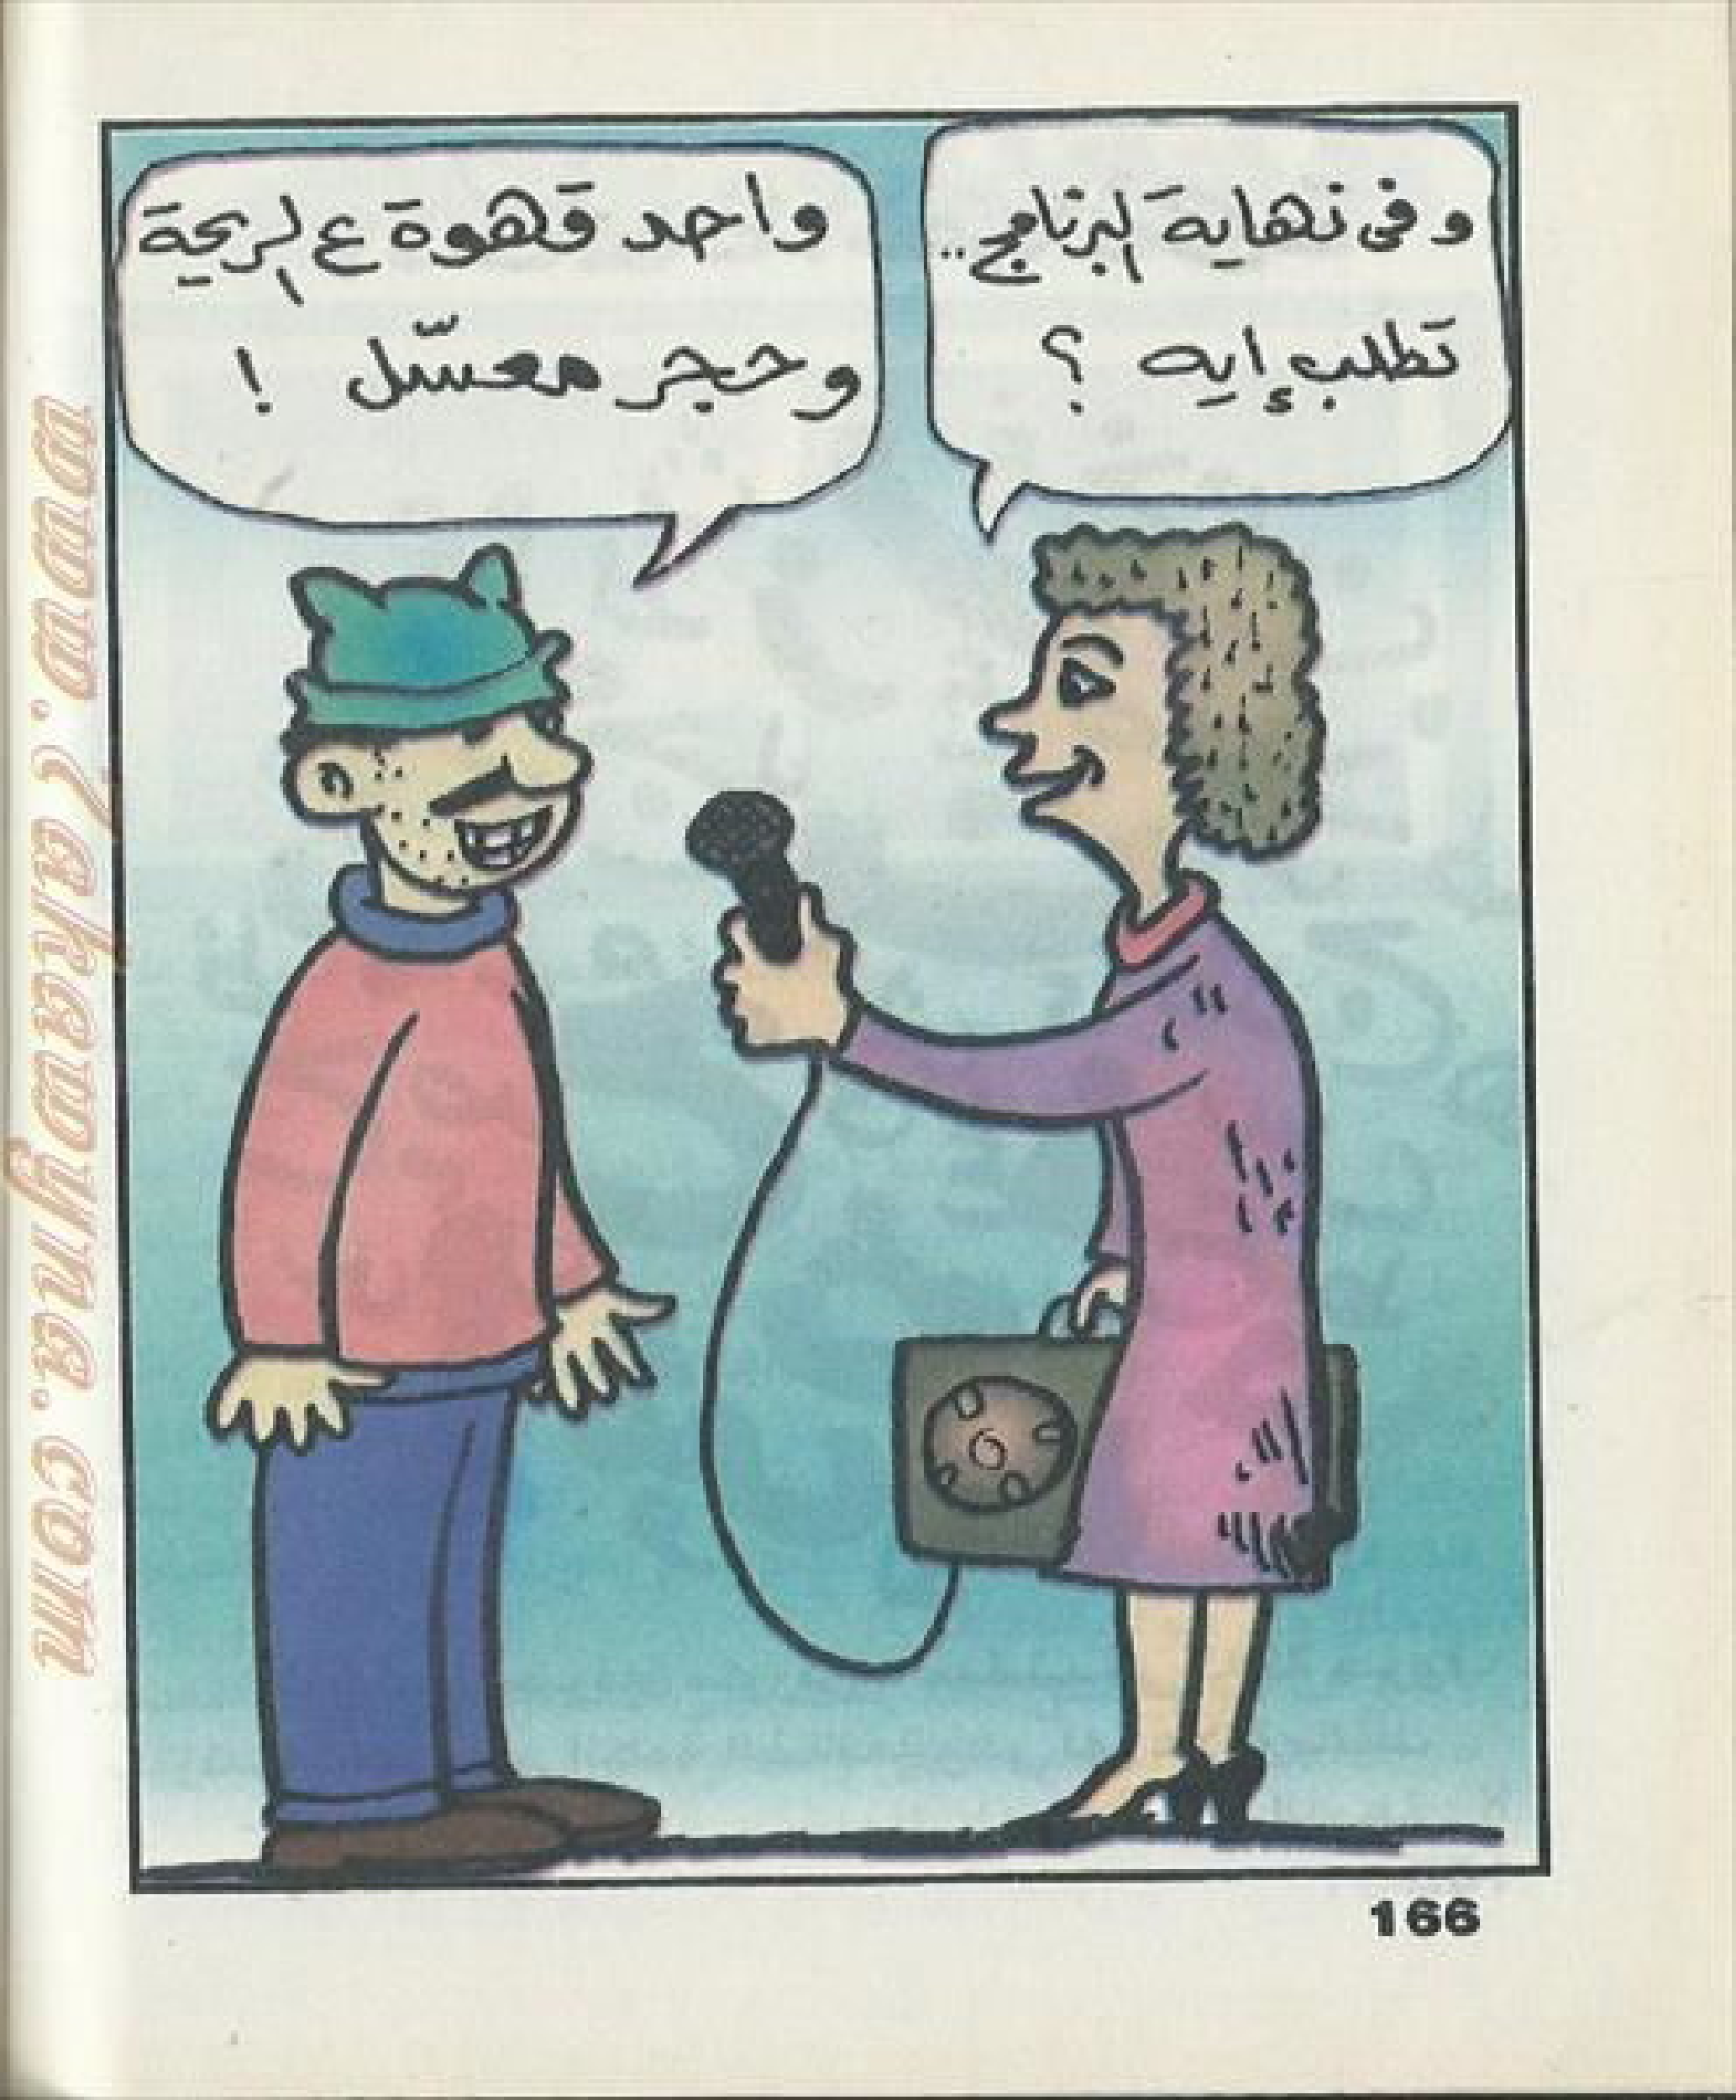 وفى نهاية البرنامج..
تطلب إيه ؟
واحد قهوة ع الريحة
وحجر معسّل !
166
www.7akawyna.com